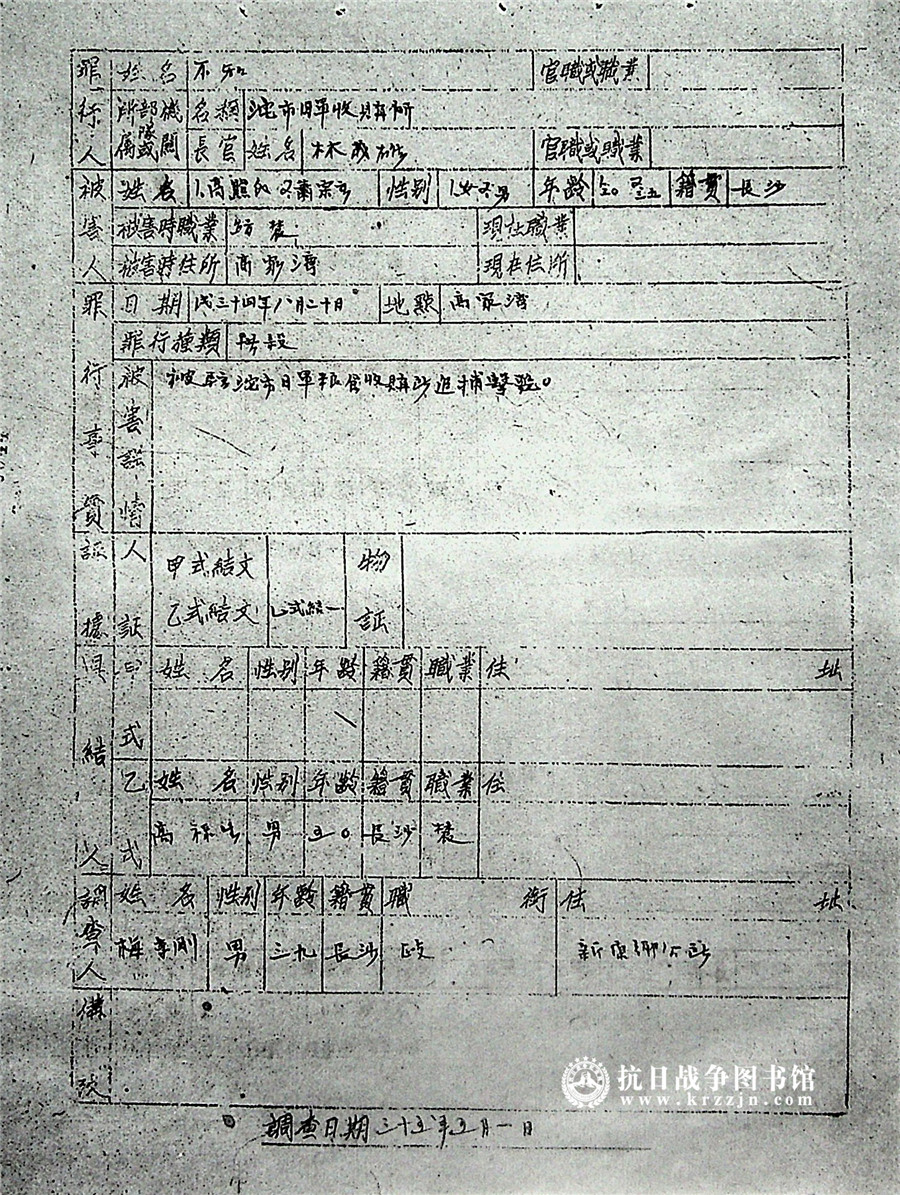 罪行人 姓名 不知 官職或職業
所部機隊或關 名稱 沱市日軍收買所
長官 姓名 林 官職或職業
被害人 姓名 1.高 2.蕭 性别 1.女 2.男 年齡 籍貫 長沙
被害時職業 紡 農 現在職業
被害時住所 高家灣 現在住所
罪行事實 日期 民三十四年八月二十日 地點 高家灣
罪行種類
被害詳情 被 沱市日軍粮食收買所追捕擊斃。
証據 人証 甲式結文 物証
乙式結文 乙式結一
具結人 甲式 姓名 性别 年齡 籍貫 職業 住址
乙式 姓名 性别 年齡 籍貫 職業 住
高 男 五〇 長沙 農
調查人 姓名 性别 年齡 籍貫 職銜 住址
梅 剛 男 三九 長沙 政 新康鄉公所
備攷
抗日战争图书馆
www.krzzjn.com
調查日期 三十五年五月一日